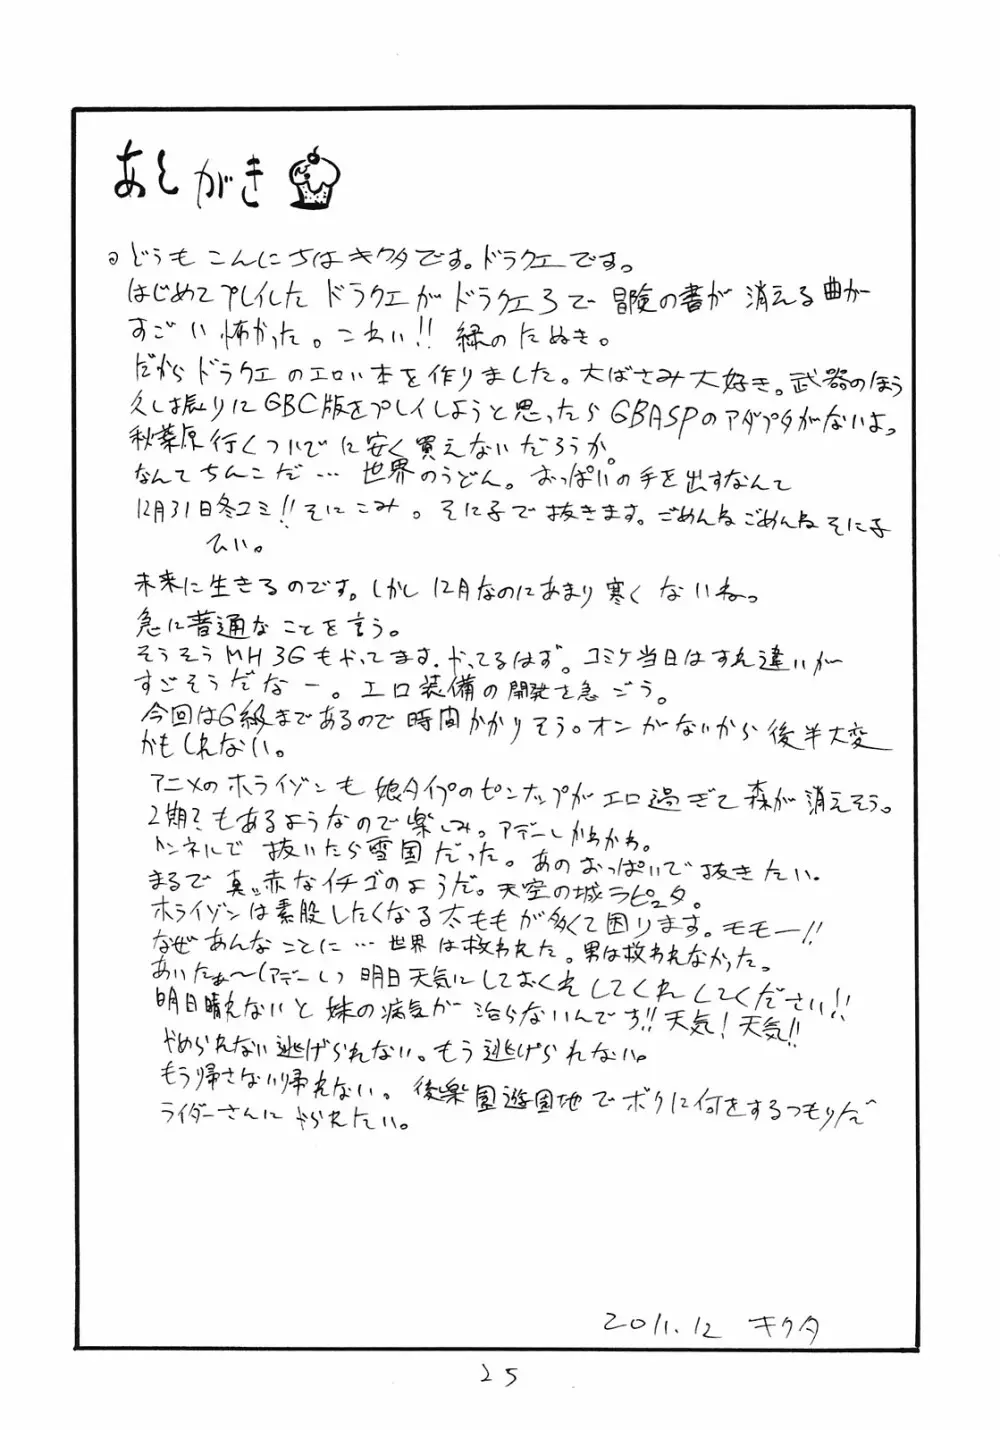 あとがき
どうもこんにちはキクタです。ドラクエです。
はじめてプレイしたドラクエがドラクエ3で冒険の書が消える曲が
すごい怖かった。こわい!!緑のたぬき。
だからドラクエのエロい本を作りました。大ばさみ大好き。武器のほう
久し振りにGBC版をプレイしようと思ったらGBASPのアダプタがないよっ
秋葉原行くついでに安く買えないだろうか。
なんてちんこだ…世界のうどん。おっぱいの手を出すなんて
12月31日冬コミ!!そにこみ。そに子で抜きます。ごめんねごめんねそに子
ひい。
未来に生きるのです。しかし12月なのにあまり寒くないねっ
急に普通なことを言う。
そうそうMH3Gもやってます.やってるはず。コミケ当日はすれ違いが
すごそうだなー。エロ装備の開発を急ごう。
今回はG級まであるので時間かかりそう。オンがないから後半大変
かもしれない。
アニメのホライゾンも娘タイプのピンナップがエロ過ぎて森が消えそう。
2期?もあるようなので楽しみ。アデーレかわかわ。
トンネルで抜いたら雪国だった。あのおっぱいで抜きたい.
まるで真っ赤なイチゴのようだ。天空の城ラピュタ。
ホライゾンは素股したくなる太ももが多くて困ります。モモー!!
なぜあんなことに…世界は救われた。男は救われなかった。
あいたぁ〜(アデーレ)明日天気にしておくれしてくれしてください!!
明日晴れないと妹の病気が治らないんです!!天気!天気!!
やめられない逃げられない。もう逃げられない。
もう帰さない帰れない。後楽園遊園地でボクに何をするつもりだ
ライダーさんにやられたい。
2011.12 キクタ
25